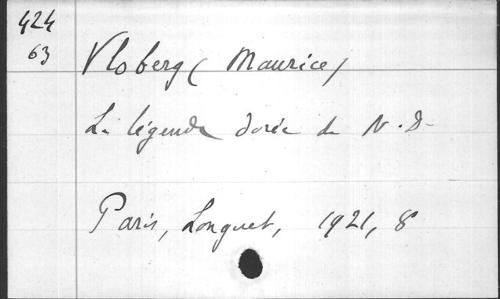 424
63
Vloberg (Maurice)
La légende dorée de N.D.
Paris, Longuet, 1921, 8